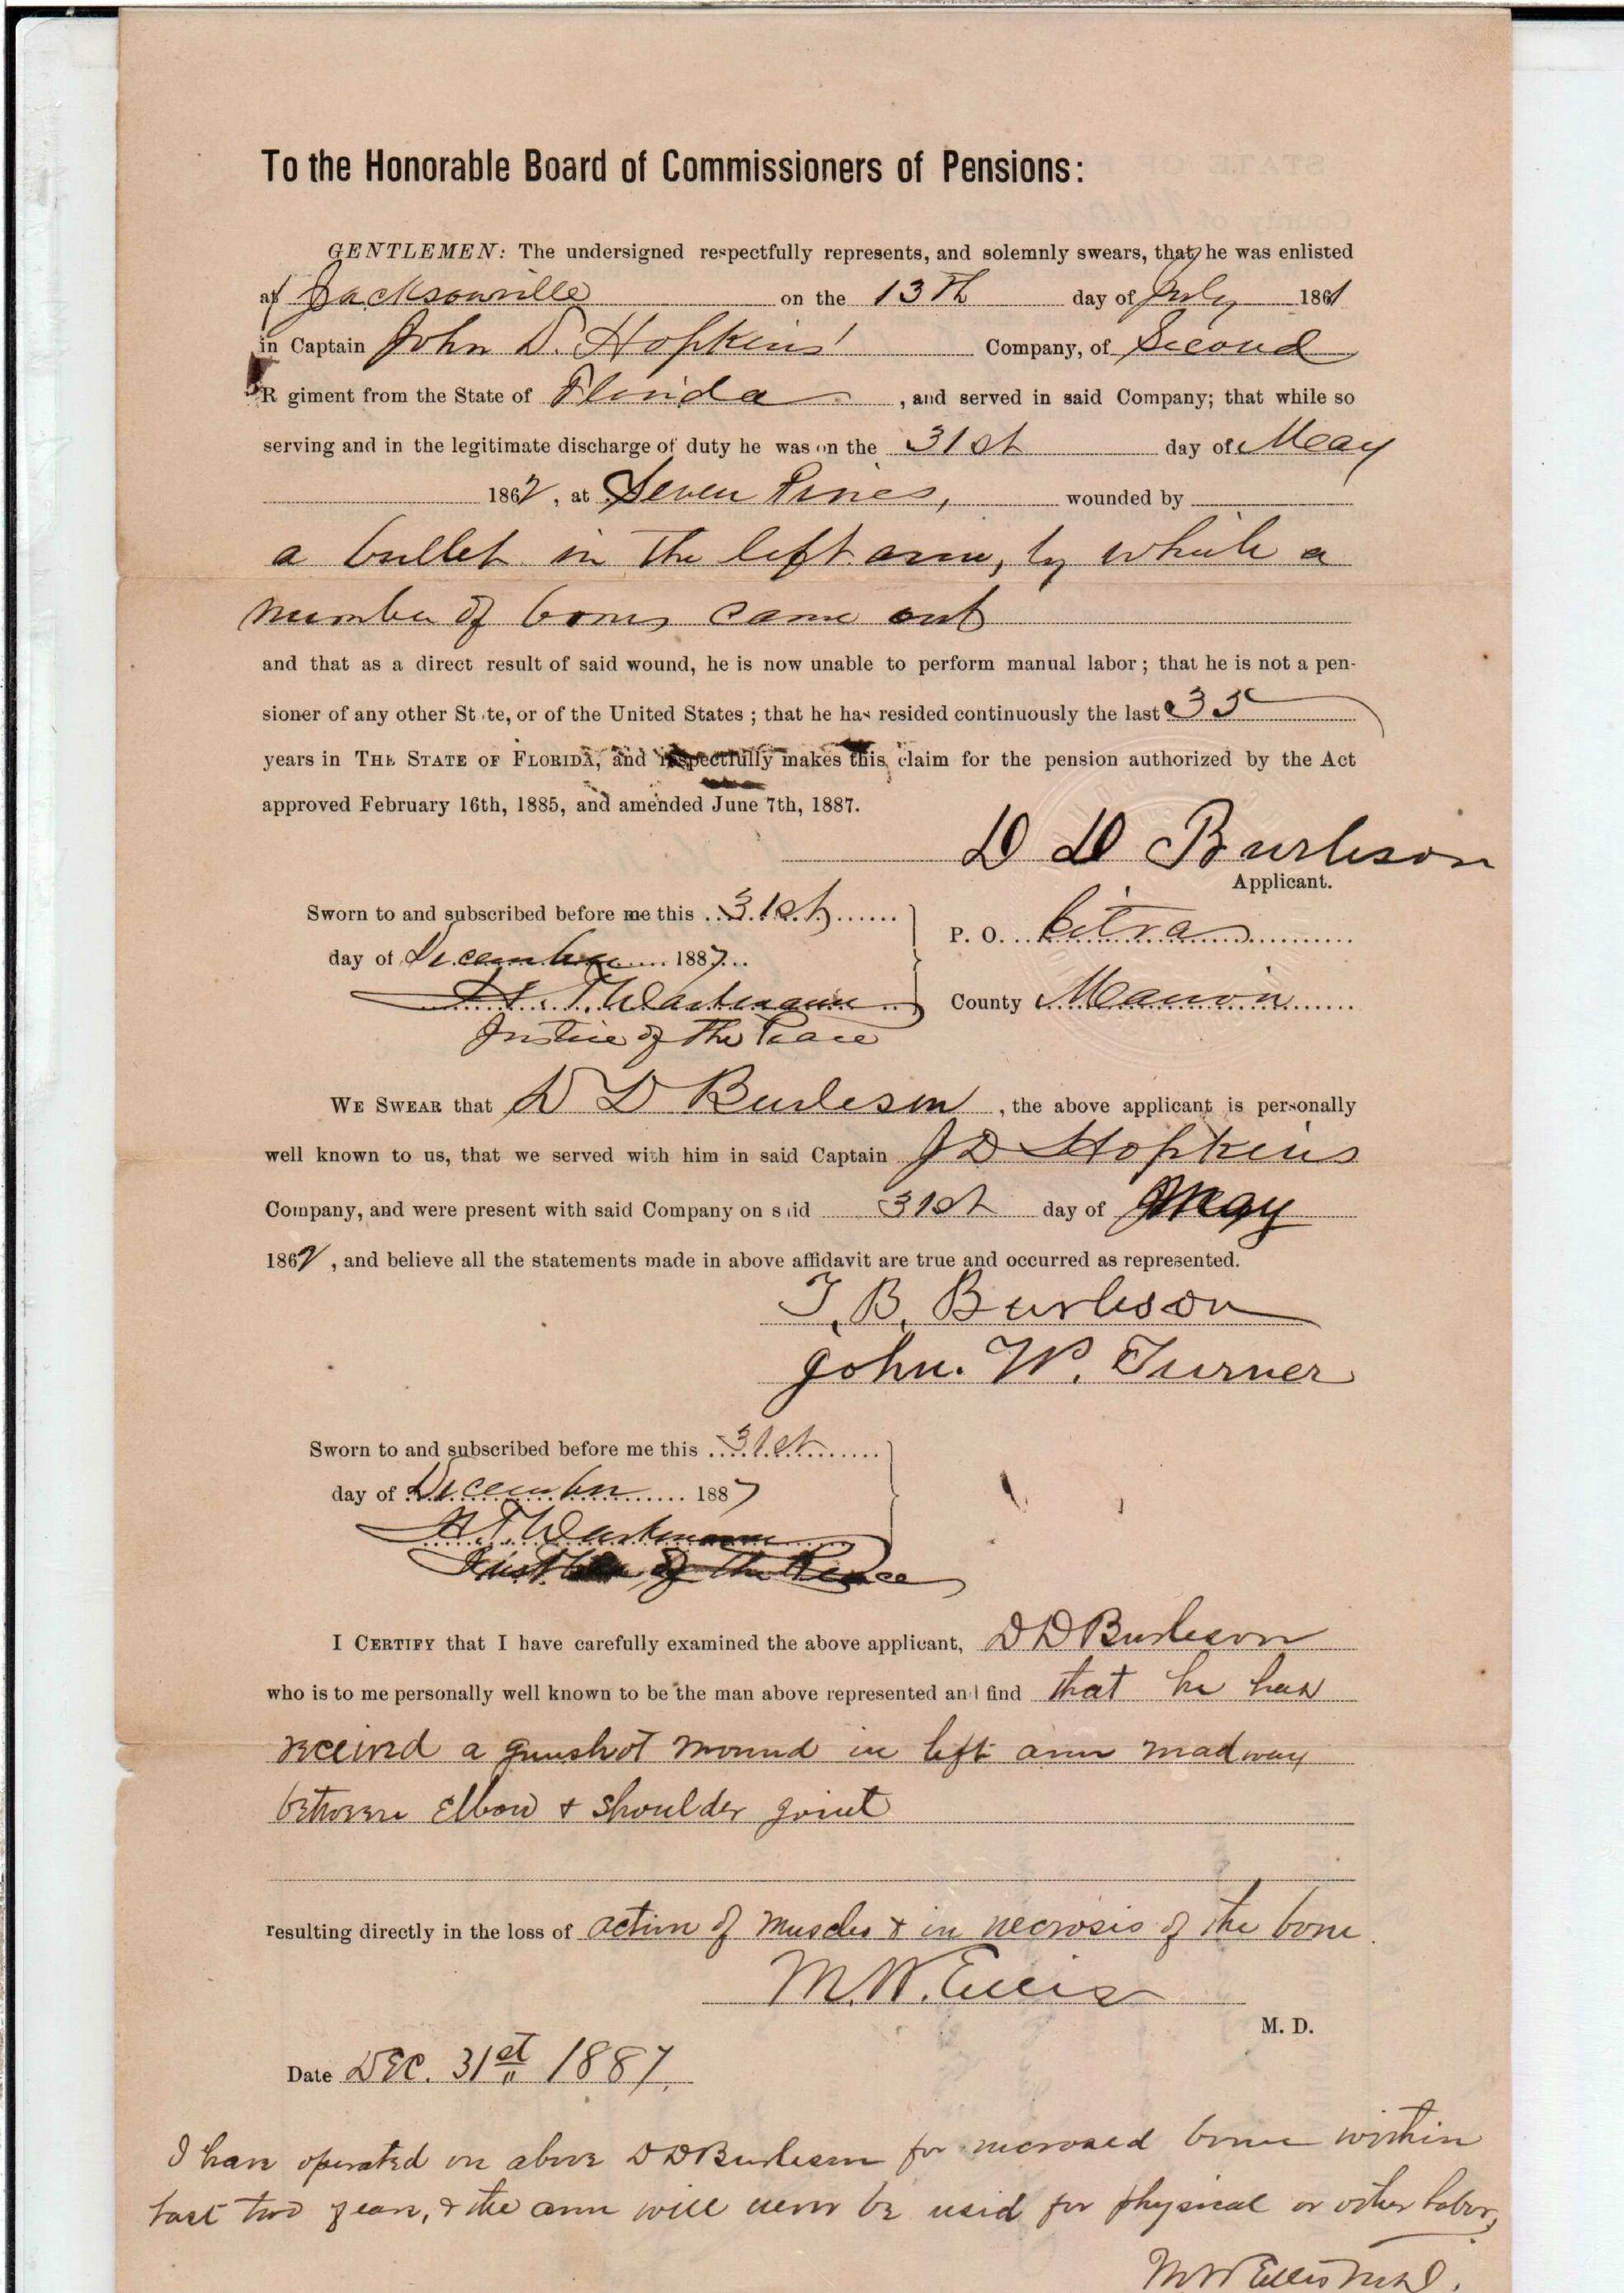 To the Honorable Board of Commissioners of Pensions:
GENTLEMEN: The undersigned respectfully represents, and solemnly swears, that he was enlisted
at Jacksonville on the 13th day of July 1861
in Captain John D. Hopkins' Company, of Second
R giment from the State of Florida, and served in said Company; that while so
serving and in the legitimate discharge of duty he was on the 31st day of May
1862, at Seven Pines, wounded by
a bullet in the left arm, by which a
number of bones came out
and that as a direct result of said wound, he is now unable to perform manual labor; that he is not a pen-
sioner of any other St te, or of the United States; that he has resided continuously the last 35
years in THE STATE OF FLORIDA, and respectfully makes this claim for the pension authorized by the Act
approved February 16th, 1885, and amended June 7th, 1887.
D D Burleson
Applicant.
Sworn to and subscribed before me this 31st
day of December 1887
P. O. Citra
H. T. Wartmann
County Marion
Justice of the Peace
WE SWEAR that D D Burleson, the above applicant is personally
well known to us, that we served with him in said Captain J D Hopkins
Company, and were present with said Company on s id 31st day of May
1862, and believe all the statements made in above affidavit are true and occurred as represented.
T. B. Burleson
John. W. Turner
Sworn to and subscribed before me this 31st
day of December 1887
H. T. Wartmann
Justice of the Peace
I CERTIFY that I have carefully examined the above applicant, D D Burleson
who is to me personally well known to be the man above represented and find that he has
received a gunshot wound in left arm madway
between Elbow & shoulder joint
resulting directly in the loss of action of muscles & in necrosis of the bone
M. W. Ellis
M. D.
Date DEC. 31st 1887.
I have operated on above D D Burleson for necrosed bone within
last two years, & the arm will never be used for physical or other labor,
M W Ellis M D.